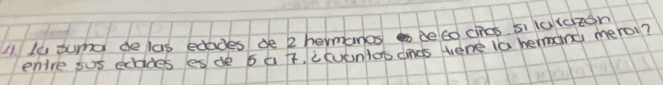 11. La suma de las edades de 2 hermanos es de 60 años si la razón
entre sus edades es de 5 a 7. ¿cuantos años tiene la hermana menor?